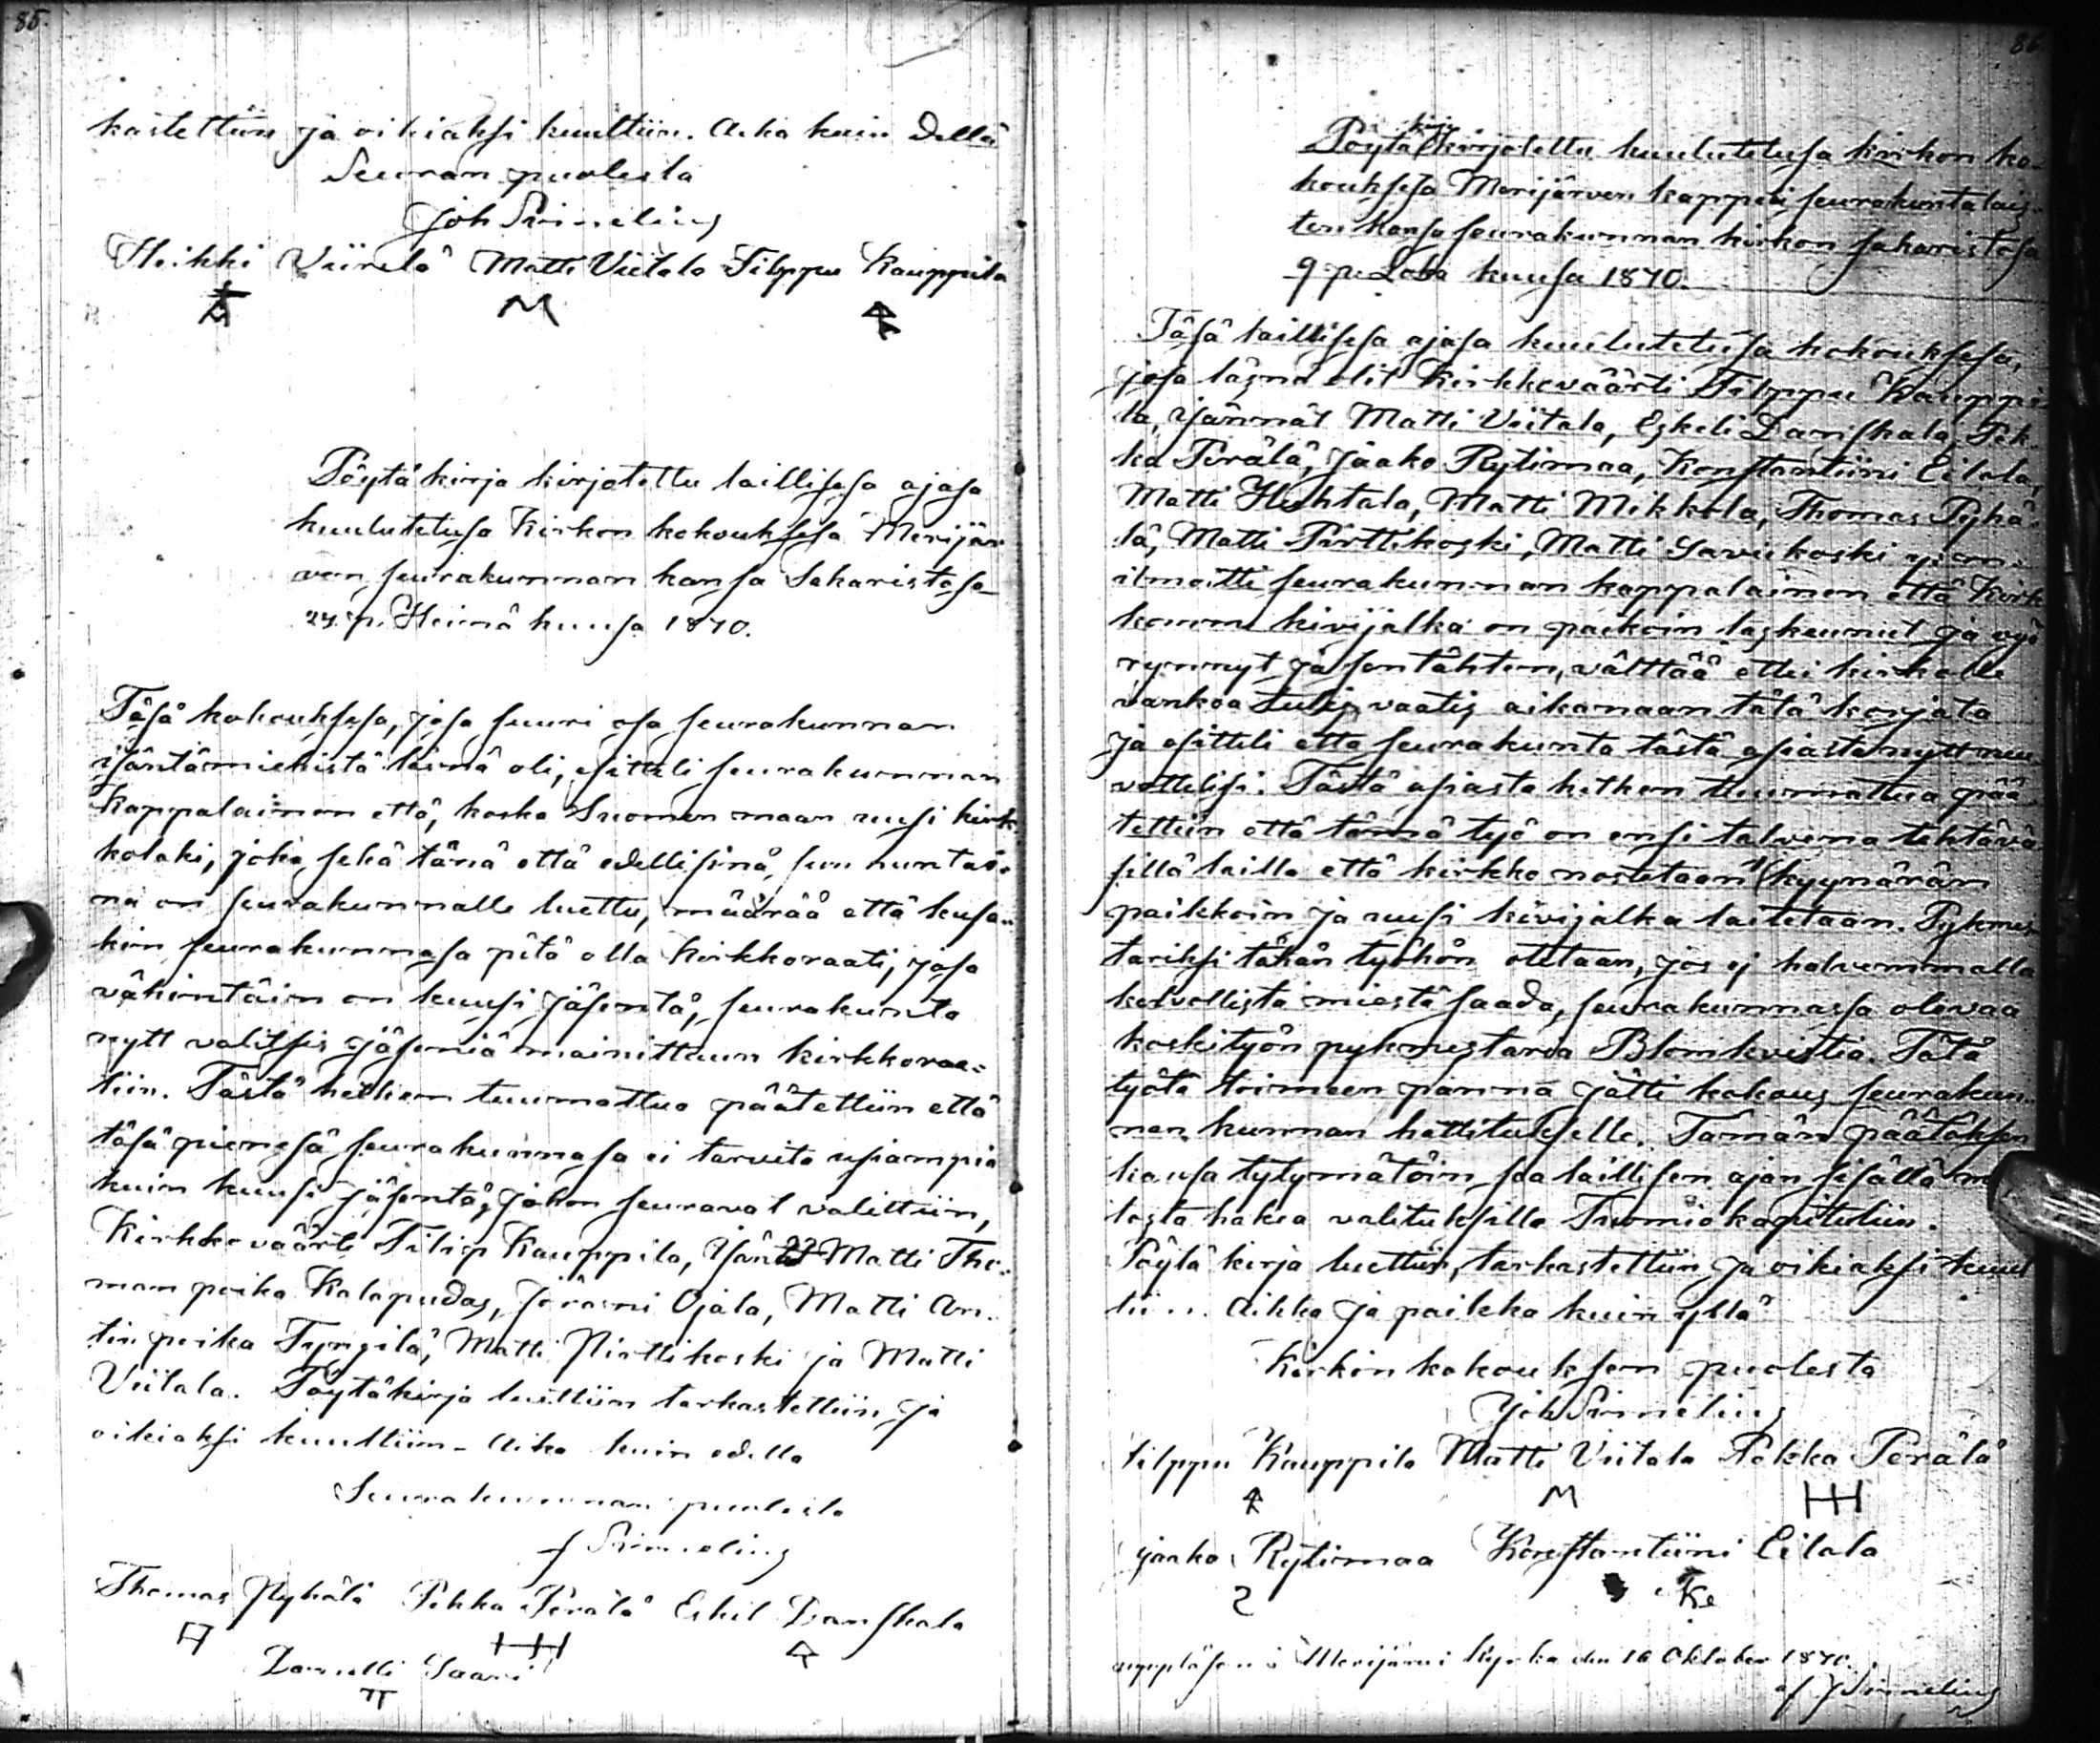 85.
kastettiin ja oikiaksi kuultiin. Aika kuin dellä
Seuran puolesta
Joh Simelius
Heikki Viirelä Matti Viitala Filppu Kauppila
M
Pöytä kirja kirjotettu laillisesa ajasa
kuulutetusa Kirkon kokouksesa Merijär
ven seurakunnan kansa Sakaristosa
24 p. Heinä kuusa 1870.
Täsä kokouksesa, josa suuri osa seurakunnan
isäntämiehistä läsnä oli, esitteli seurakunnan
Kappalainen että, koska Suomen maan uusi kirk
kolaki, joka sekä tänä että edellisinä sunnuntai-
na on seurakunnalle luettu, määrää että kusa-
kin seurakunnasa pitä olla Kirkkoraati, josa
vähintäin on kuusi jäsentä, seurakunta
nytt valitsis jäseniä mainittuun kirkkoraa=
tiin. Tästä hetken tuumattua päätettiin että
täsä pienesä seurakunnasa ei tarvita usiampia
kuin kuusi jäsentä, johon seuraavat valittiin,
Kirkkoväärti Filip Kauppila, Isännät Matti Tho-
man poika Kalapudas, Jeräsmi Ojala, Matti An-
tin poika Tyngilä, Matti Pirttikoski ja Matti
Viitala. Pöytäkirja luettiin tarkastettiin ja
oikiaksi kuultiin - Aika kuin edella
Seurakunnan puolesta
J Simelius
Thomas Pyhälä Pekka Perälä Eskil Danskala
Danielli Saari
86
Pöytä kirja kirjotettu kuulutetusa kirkon ko-
kouksesa Merijärven kappeli seurakuntalais-
ten kansa seurakunnan kirkon sakaristosa
9 p. Loka kuusa 1870.
Täsä laillisesa ajasa kuulutetusa kokouksesa,
josa läsnä olit Kirkkoväärti Filppu Kauppi
la, isännät Matti Viitala, Eskeli Danskala, Pek-
ka Perälä, Jaako Rytimaa, Konstantiini Eilala,
Matti Huhtala, Matti Mikkola, Thomas Pyhä-
lä, Matti Pirttikoski, Matti Saviikoski y.m.
ilmoitti seurakunnan kappalainen että Kirk
komme kivijalka on paikoin laskeunut ja vyö
rynnyt ja sentähten, välttää ettei kirkolle
vankoa tulis, vaatis aikanaan tätä korjata
ja esitteli etta seurakunta tästä asiasta nytt neu-
vottelisi. Tästä asiasta hetken tuumattua pää
tettiin että tämä työ on ensi talvena tehtävä
sillä lailla että kirkko nostetaan 1 kyynärän
paikkoin ja uusi kivijalka laitetaan. Rykmes
tariksi tähän työhön otetaan, jos ej halvemmalla
kelvollista miestä saada, seurakunnassa olevaa
koskityön rykmestaria Blomkvistia. Tätä
työtä toimeen panna jätti kokous seurakun
nan kunnan hallitukselle. Tämän päätöksen
kansa tytymätöin saa laillisen ajan sisällä
tästa hakea valituksilla Tuomiokapituliin.
Pöytä kirja luettiin, tarkastettiin ja oikiaksi kuul
tii... Aikka ja paikka kuin yllä
Kirkon kokouksen puolesta
Joh Simelius
filppu Kauppila Matti Viitala Pekka Perälä
M
jaako Rytimaa Konstantiini Eilala
Ke
uppläsen i Merijärvi kyrka den 16 Oktober 1870.
af J Simelius